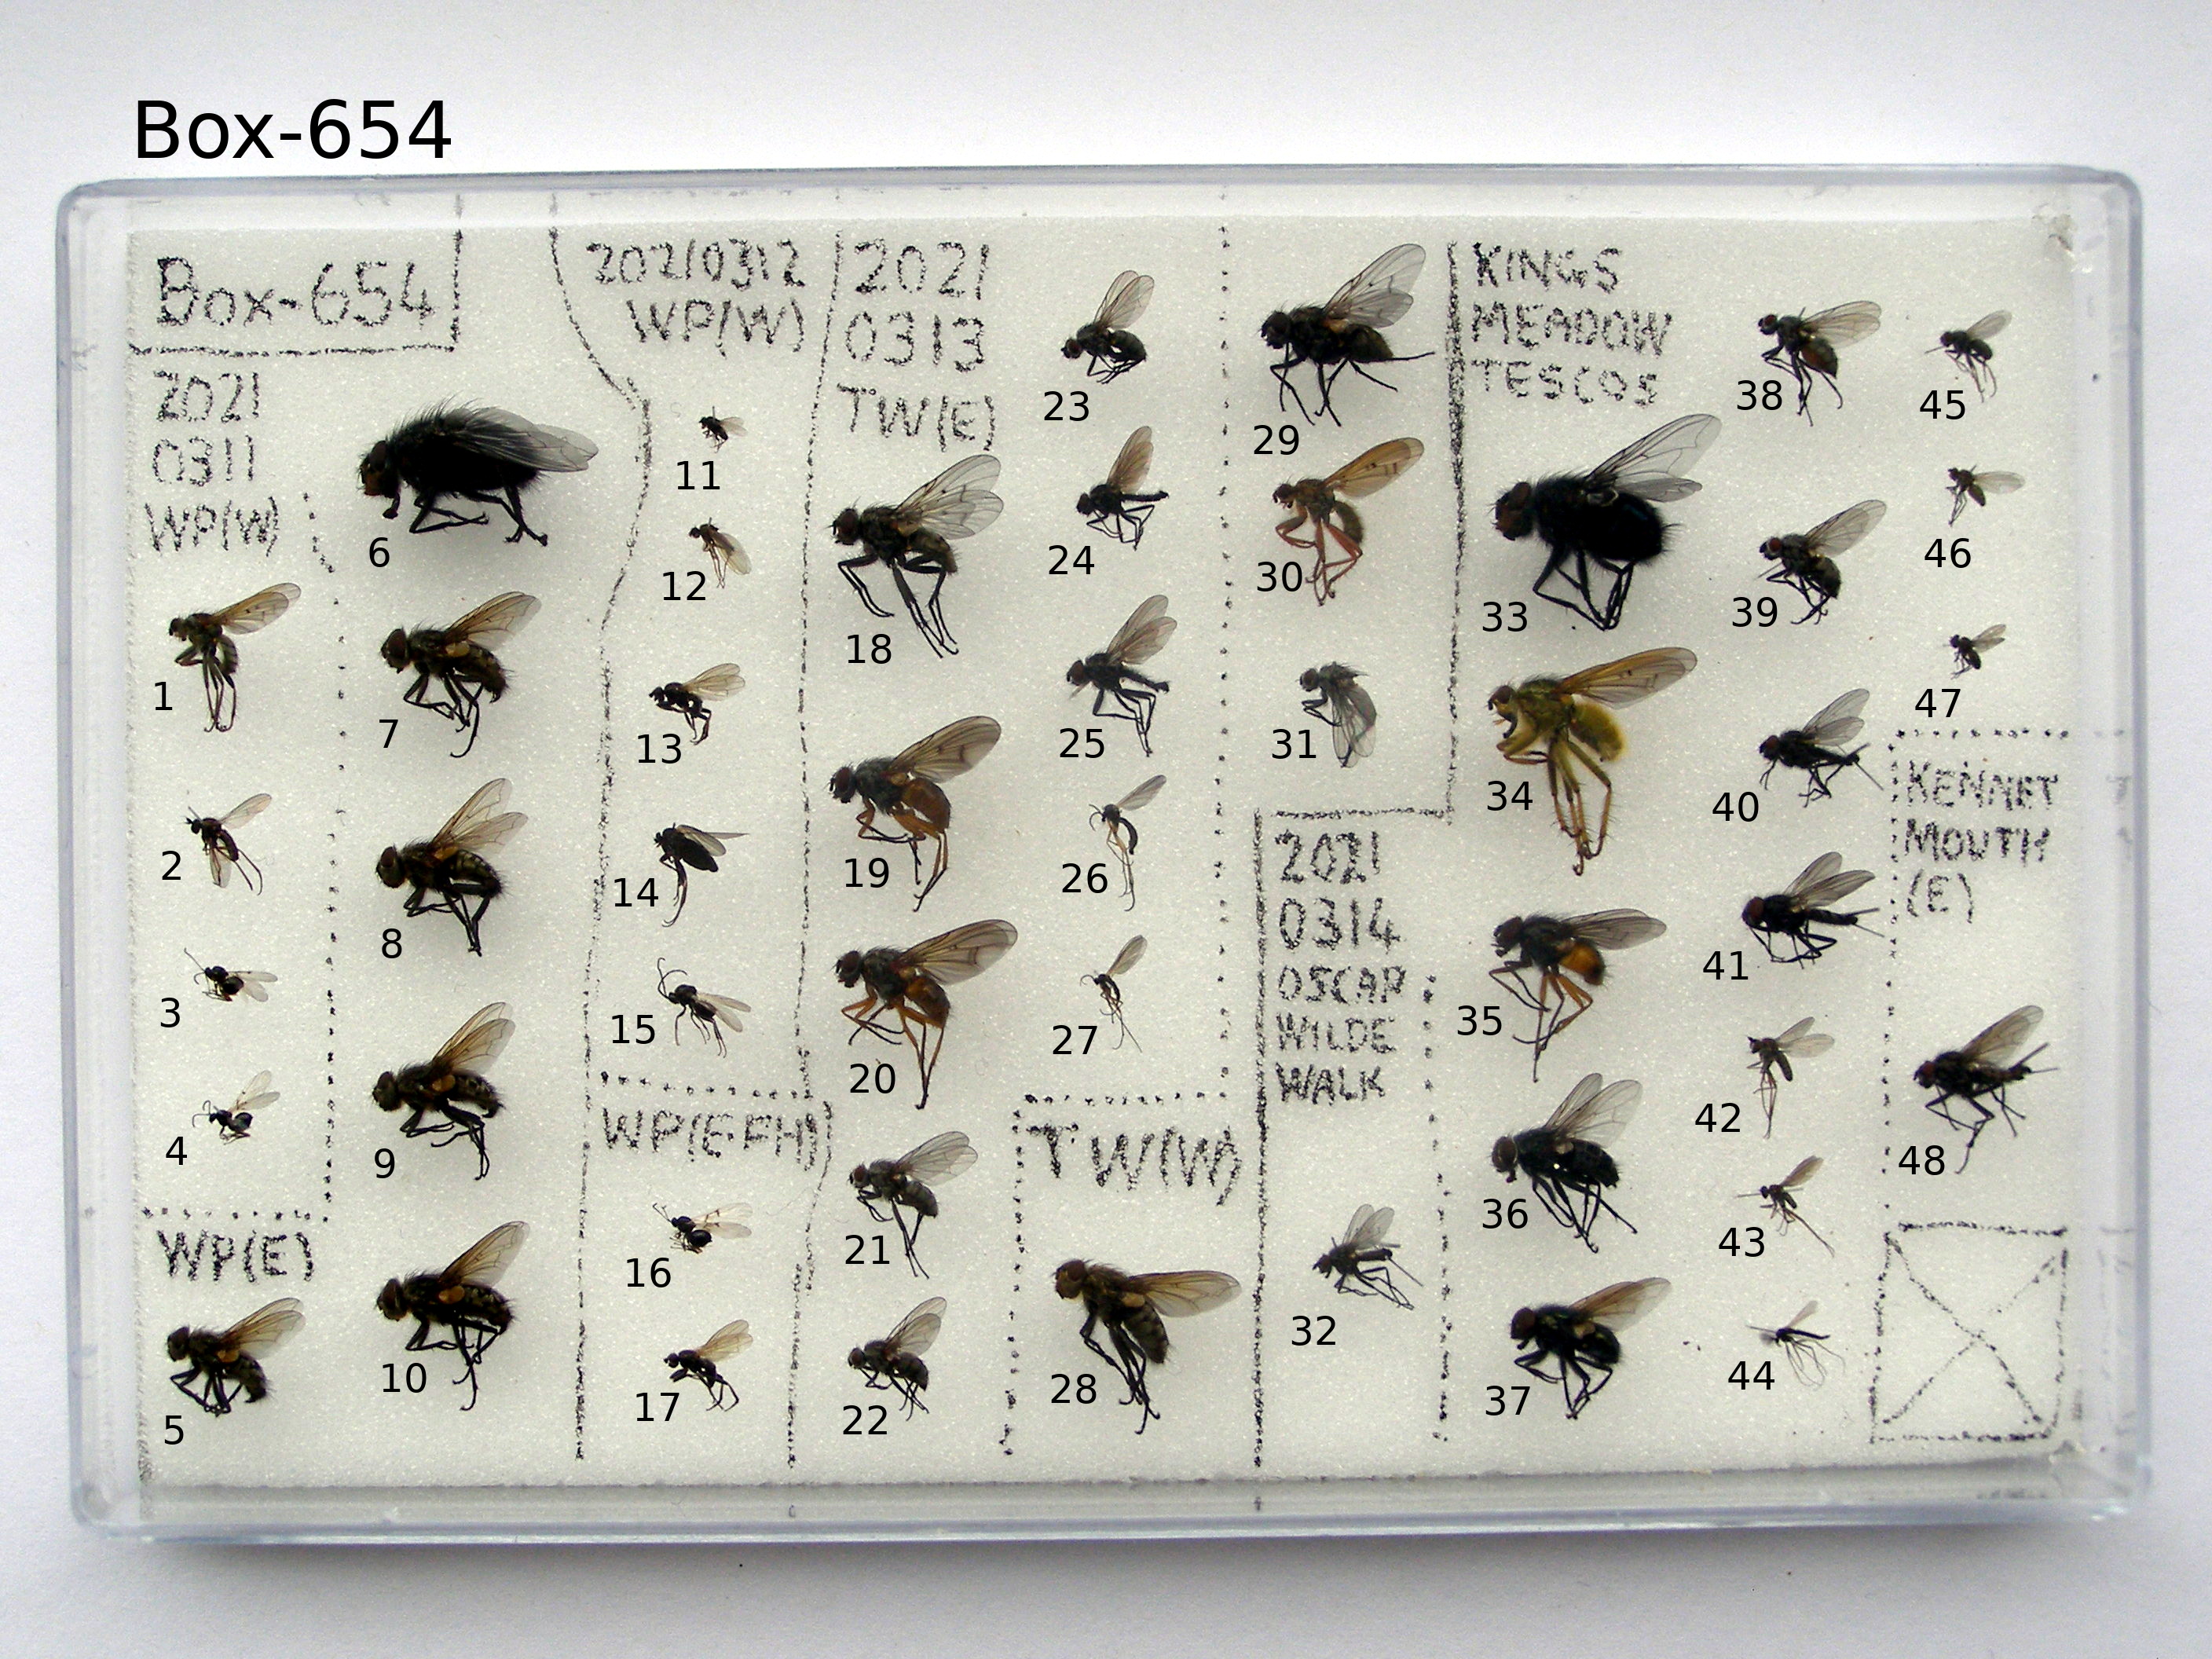 Box-654
Box-654
2021
0311
WP(W)
1
2
3
4
WP(E)
5
6
7
8
9
10
20210312
WP(W)
11
12
13
14
15
WP(EFH)
16
17
2021
0313
TW(E)
18
19
20
21
22
23
24
25
26
27
TW(W)
28
29
30
31
2021
0314
OSCAR
WILDE
WALK
32
KINGS
MEADOW
TESCOS
33
34
35
36
37
38
39
40
41
42
43
44
45
46
47
KENNET
MOUTH
(E)
48